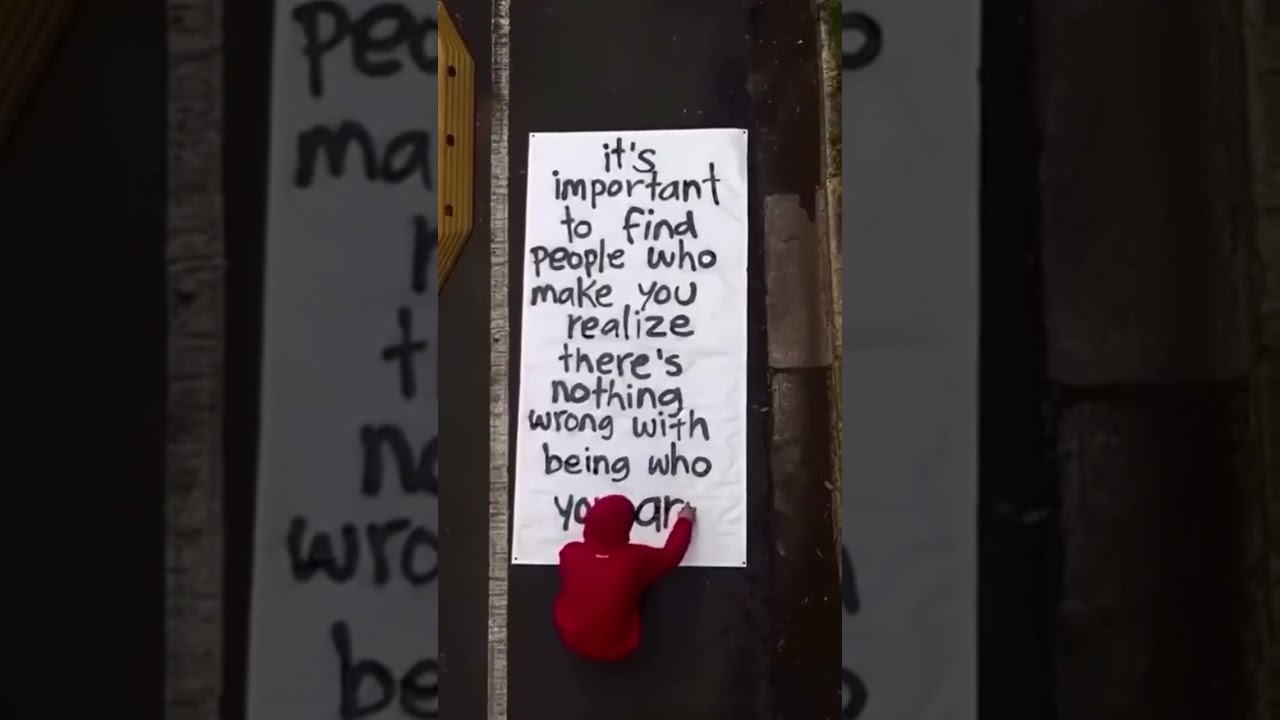 it's
important
to find
people who
make you
realize
there's
nothing
wrong with
being who
you ar